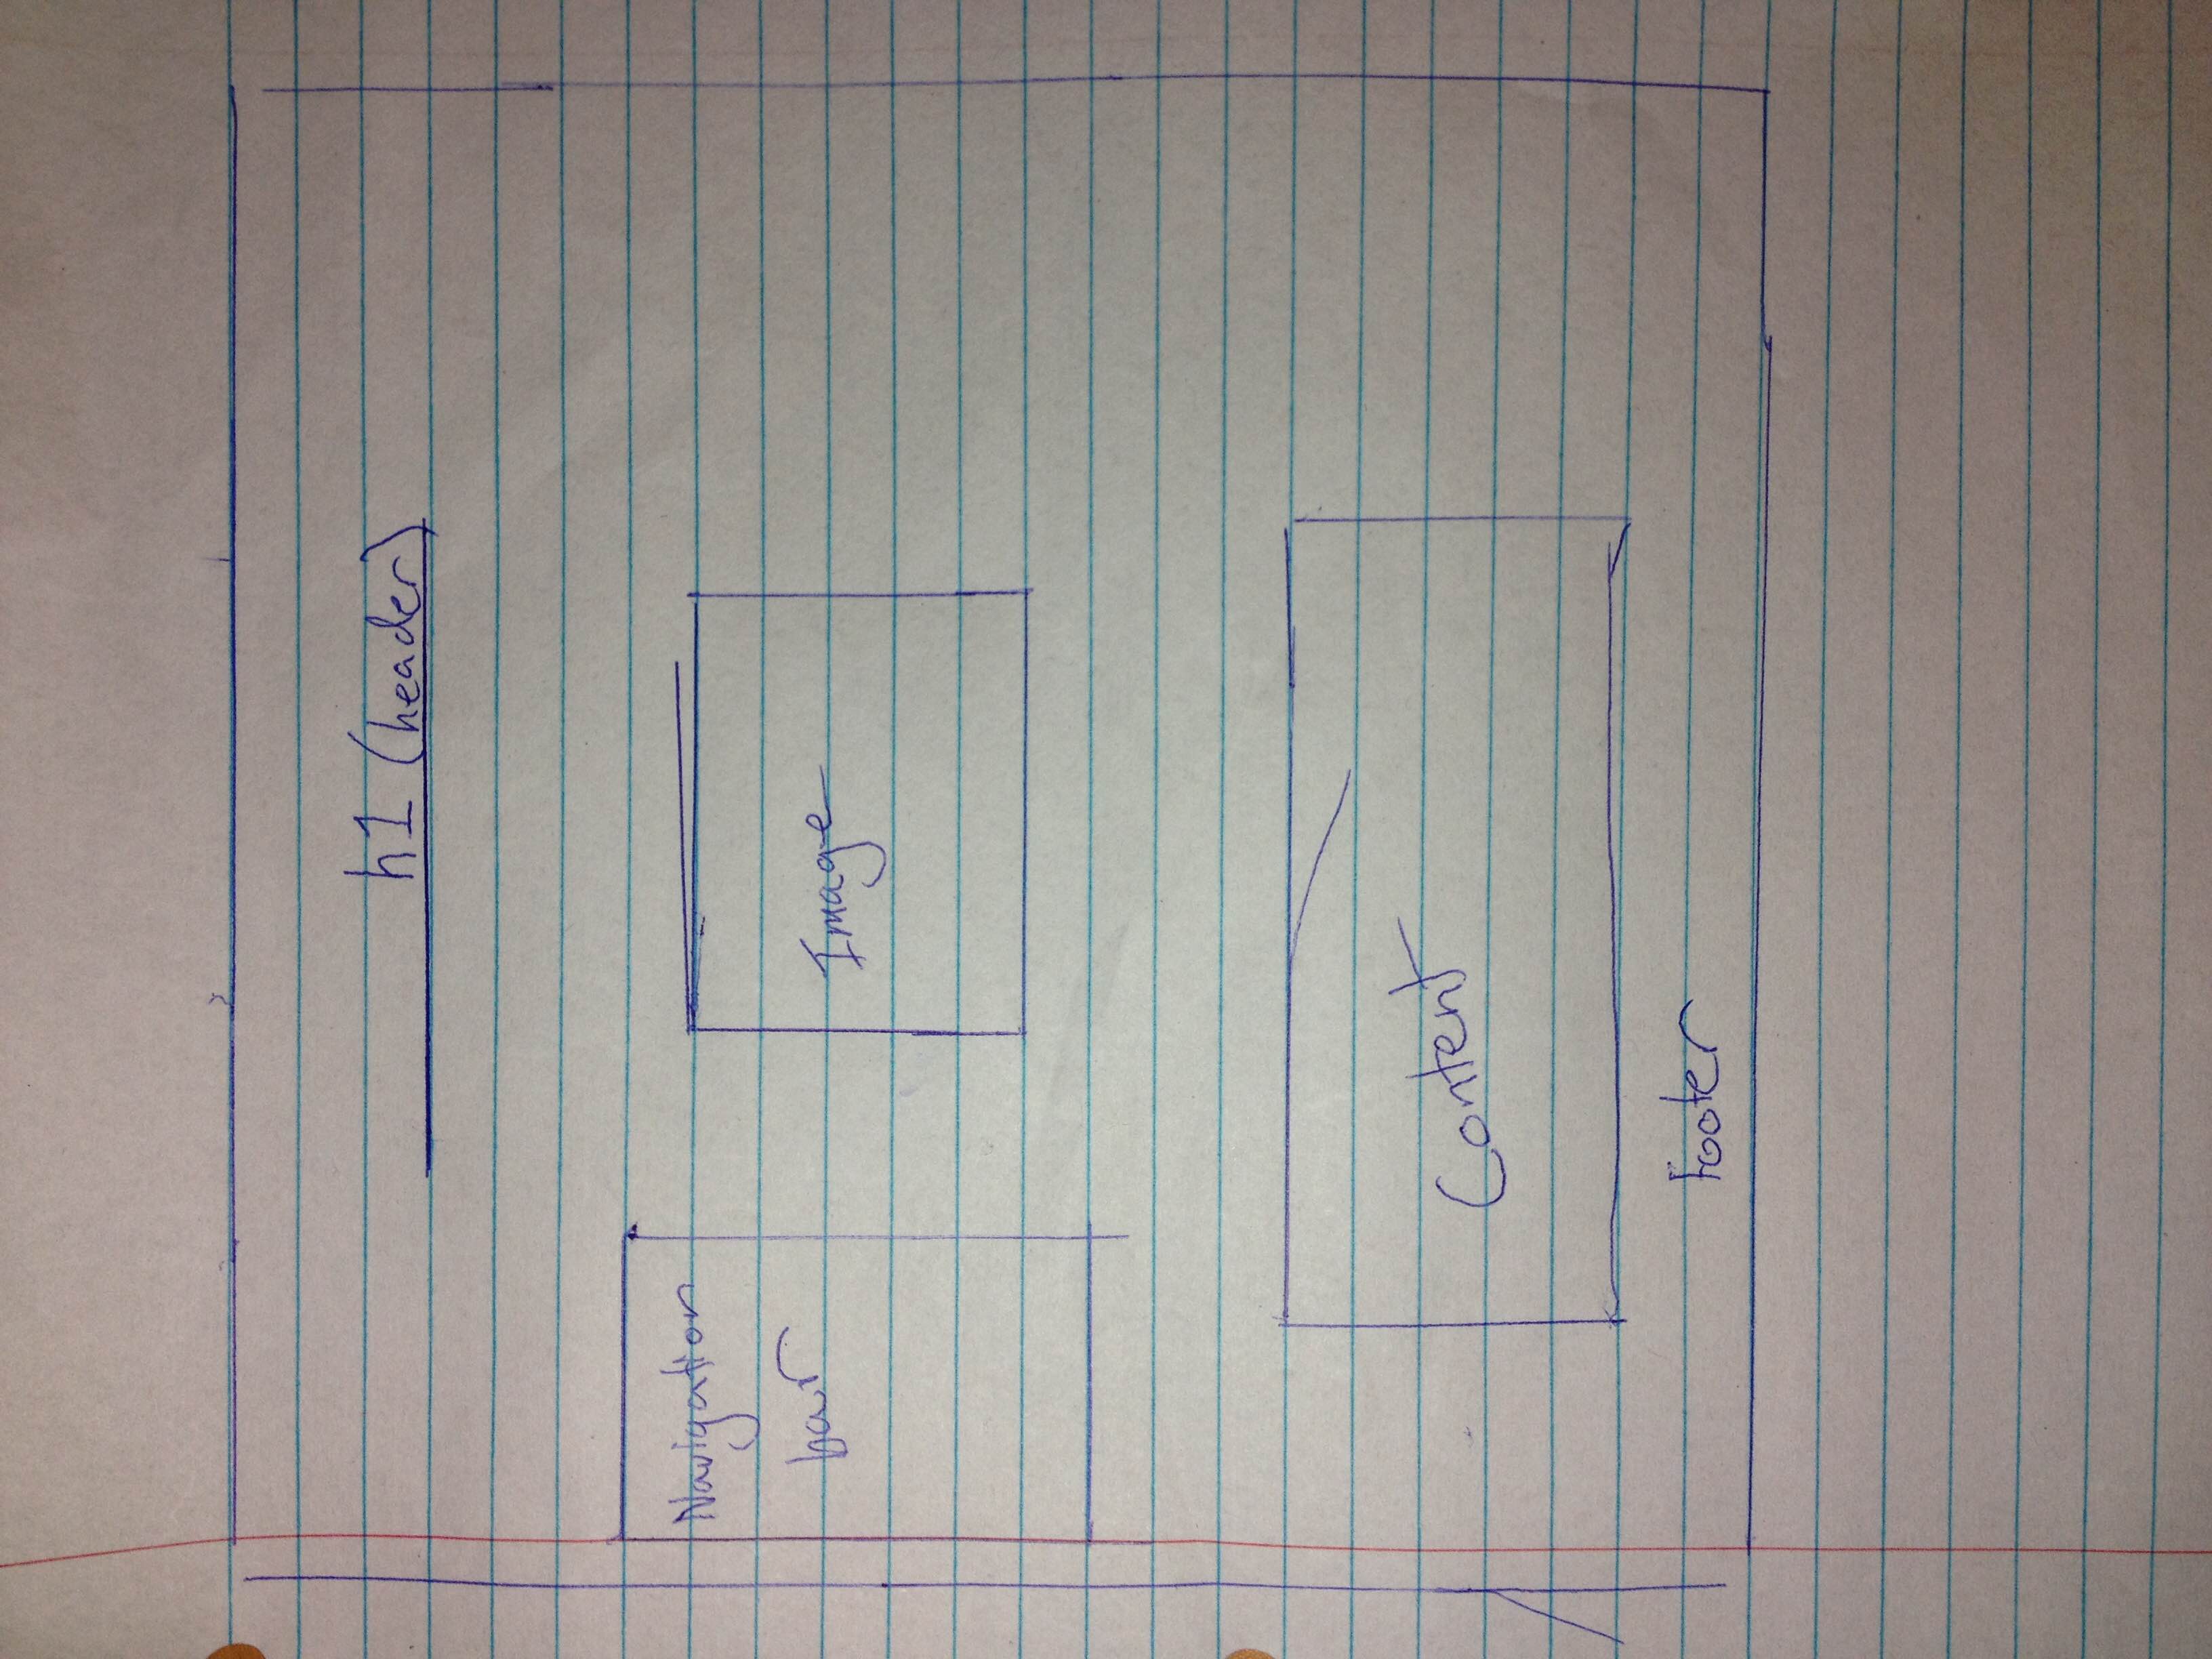 h1 (header)
Navigation
bar
Image
Content
Footer